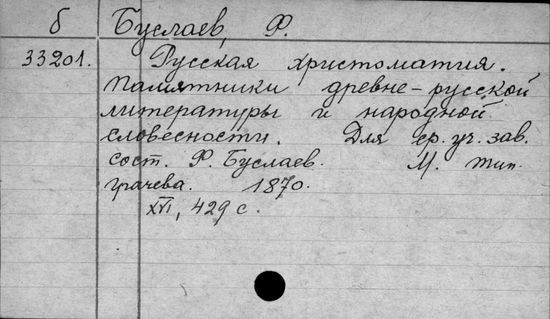 б Буслаев, Ф.
33201. Русская христоматия.
Памятники древне-русской
литературы и народной
словесности. Для ср. уч. зав.
сост. Ф. Буслаев. М. тип.
Грачева. 1870.
XVI, 429 с.